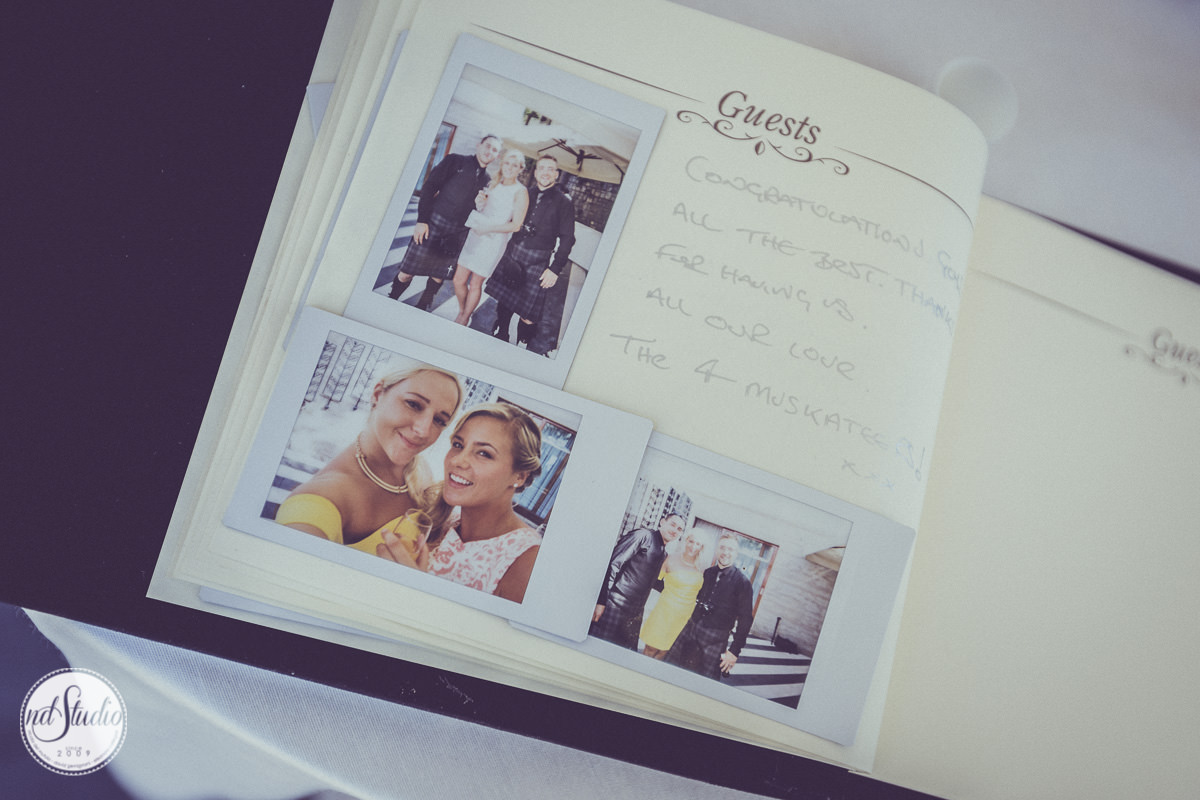 Guests
CONGRATULATIONS
ALL THE BEST. THANKS
FOR HAVING US.
ALL OUR LOVE.
THE 4 MUSKATEERS!
xxx
Gues
nd Studio
SINCE
2009